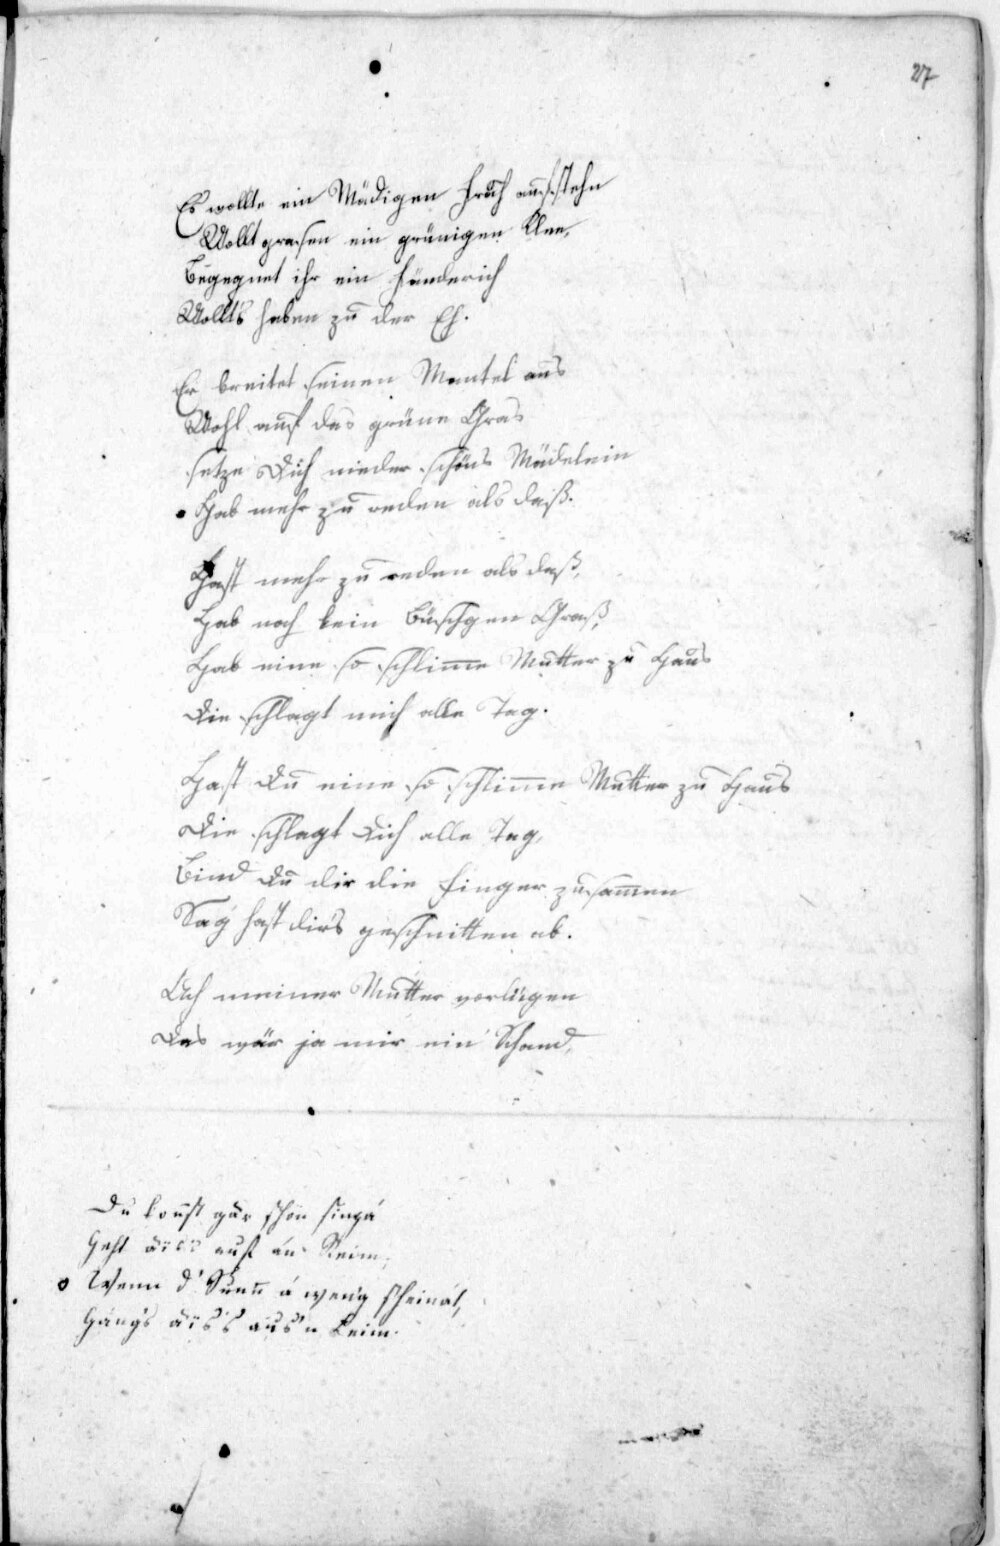 27
Es wollte ein Mädigen früh aufstehn
Wollt grasen ein grünigen Klee,
Begegnet ihr ein Fänderich
Wollts haben zu der Eh.
Er breitet seinen Mantel aus
Wohl auf das grüne Gras
setze Dich nieder schöns Mädelein
Hab mehr zu reden als daß.
Hast mehr zu reden als daß,
Hab noch kein Büschgen Graß,
Hab eine so schlimme Mutter zu Haus
Die schlagt mich alle Tag.
Hast Du eine so schlimme Mutter zu Haus
Die schlagt Dich alle Tag,
Bind Du dir die Finger zusammen
Sag hast dirs geschnitten ab.
Ach meiner Mutter vorlügen
Das wär ja mir ein Schand,
Du konst gär schön singá
Geht äis auf án Reim,
Wenn d' Sunn á weng scheinát,
Gängs äis's aus'n Leim.